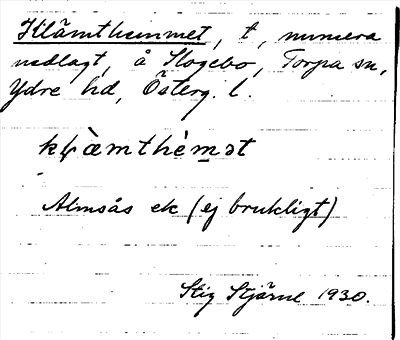 Klämthemmet, t, numera
nedlagt, å Skogebo, Torpa sn,
Ydre hd, Österg. l.
kɫæ̀mthèm̲ət
Almsås ek (ej brukligt)
Stig Stjärne 1930.